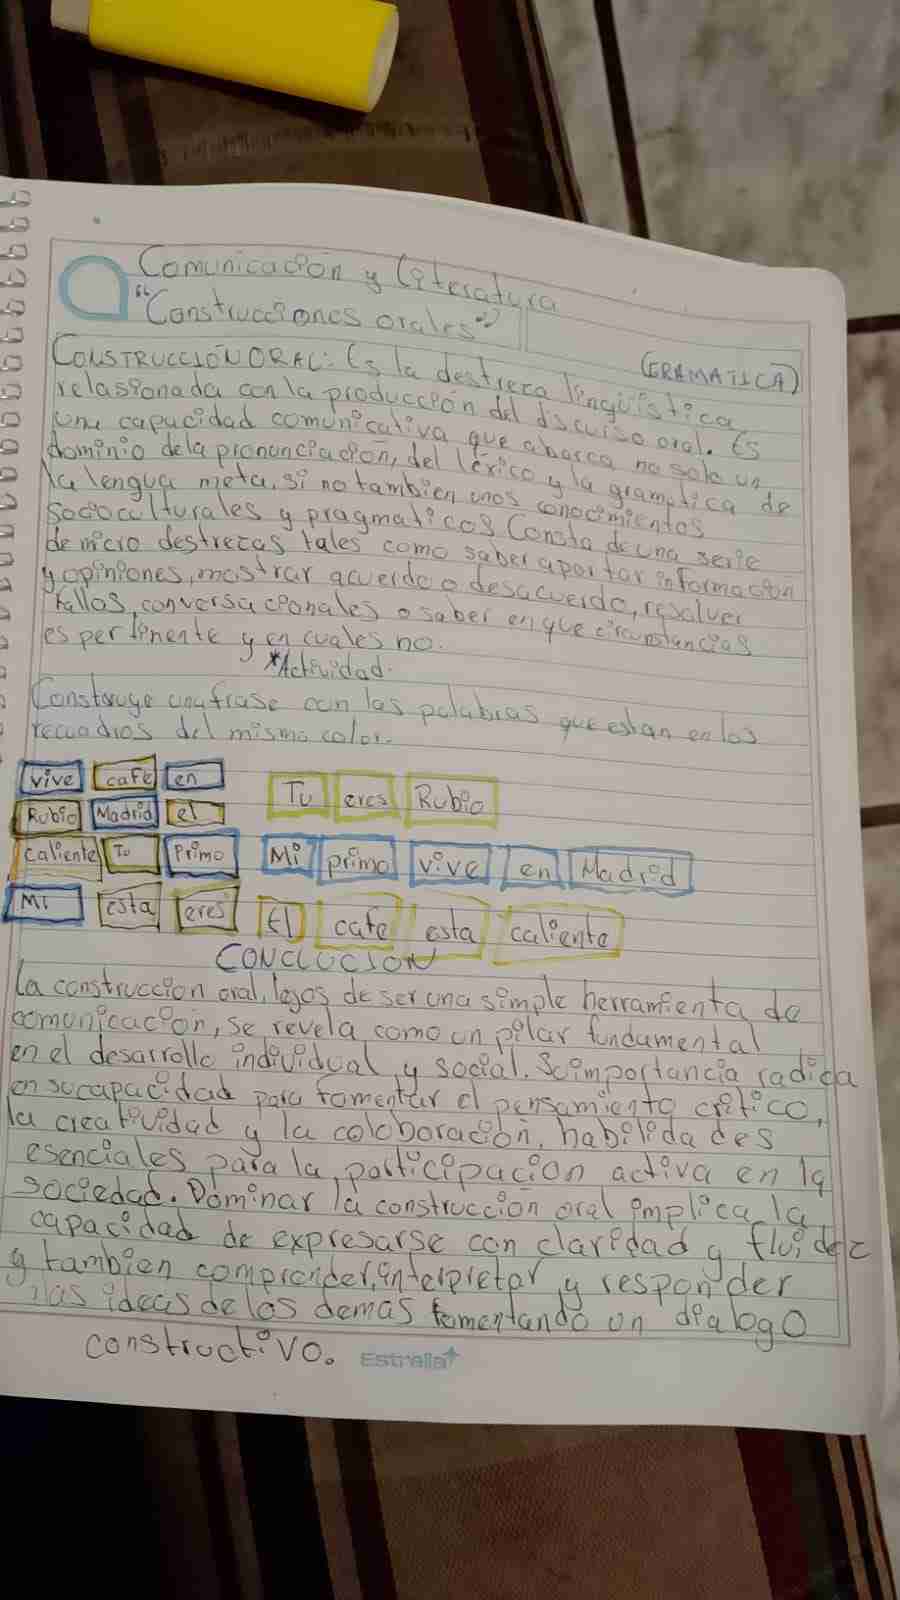 Comunicación y Literatura
"Construcciones orales"
(GRAMATICA)
CONSTRUCCIÓN ORAL: Es la destreza lingüistica
relasionada con la producción del discurso oral. Es
una capacidad comunicativa que abarca no solo un
dominio dela pronunciación, del léxico y la gramatica de
la lengua meta, si no tambien unos conocimientos
socioculturales y pragmaticos Consta de una serie
de micro destrezas tales como saber aportar información
y opiniones, mostrar acuerdo o desacuerdo, resolver
fallos conversacionales o saber en que circunstancias
es pertinente y en cuales no.
*Actividad.
Construye una frase con las palabras que estan en los
recuadros del mismo color.
vive cafe en
Tu eres Rubio
Rubio Madrid el
caliente Tu Primo
Mi primo vive en Madrid
Mi esta eres
El cafe esta caliente
CONCLUCION
la construccion oral, lejos de ser una simple herramienta de
comunicación, se revela como un pilar fundamental
en el desarrollo individual y social. Su importancia radica
en su capacidad para fomentar el pensamiento crítico,
la creatividad y la coloboración, habilidades
esenciales para la participación activa en la
sociedad. Dominar la construcción oral implica la
capacidad de expresarse con claridad y fluidez
y tambien comprender, interpretar y responder
las ideas de los demas fomentando un dialogo
constructivo.
Estrella